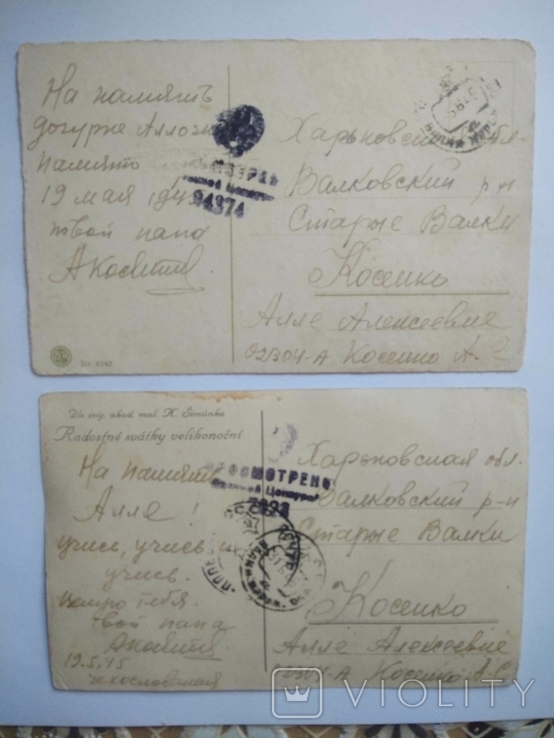 На память
дочурке Аллочке
память
19 мая
твой папа
АКосенко
Военной Цензурой
94374
Харьковская обл.
Валковский р-н
Старые Валки
Косенко
Алле Алексеевне
02304-А Косенко А.С
Dle orig. akad. mal. K. Šimůnka
Radostné svátky velikonoční
На память
Алле!
учись, учись, и
учись.
целую тебя.
твой папа
АКосенко
19.5.45
Чехословакия
ПРОСМОТРЕНО
Военной Цензурой
Харьковская обл.
Валковский р-н
Старые Валки
Косенко
Алле Алексеевне
02304-А Косенко А.С
VIOLITY